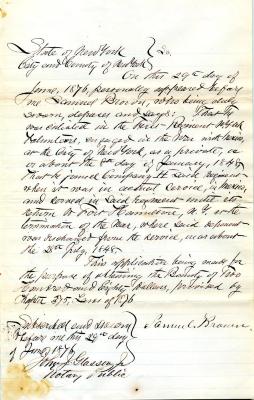 State of New York
City and County of New York } Ss.
On this 29th day of
June, 1876, personally appeared before
me Samuel Brown, who being duly
sworn, deposes and says: That he
was enlisted in the First Regiment N. York
Volunteers, engaged in the War with Mexico,
at the City of New York, as a private, on
or about the day of January, 1848
That he joined Company H said Regiment
when it was in actual service, in Mexico,
and served in said Regiment until its
return to Fort Hamilton, N.Y. at the
termination of the War, where said deponent
was discharged from the service, on or about
the July, 1848
This application being made for
the purpose of obtaining the Bounty of Two
Hundred and Eighty Dollars, provided by
Chapter 375, Laws of 1876
Subscribed and sworn
before me this 29th day
of June 1876
Samuel Brown
Notary Public